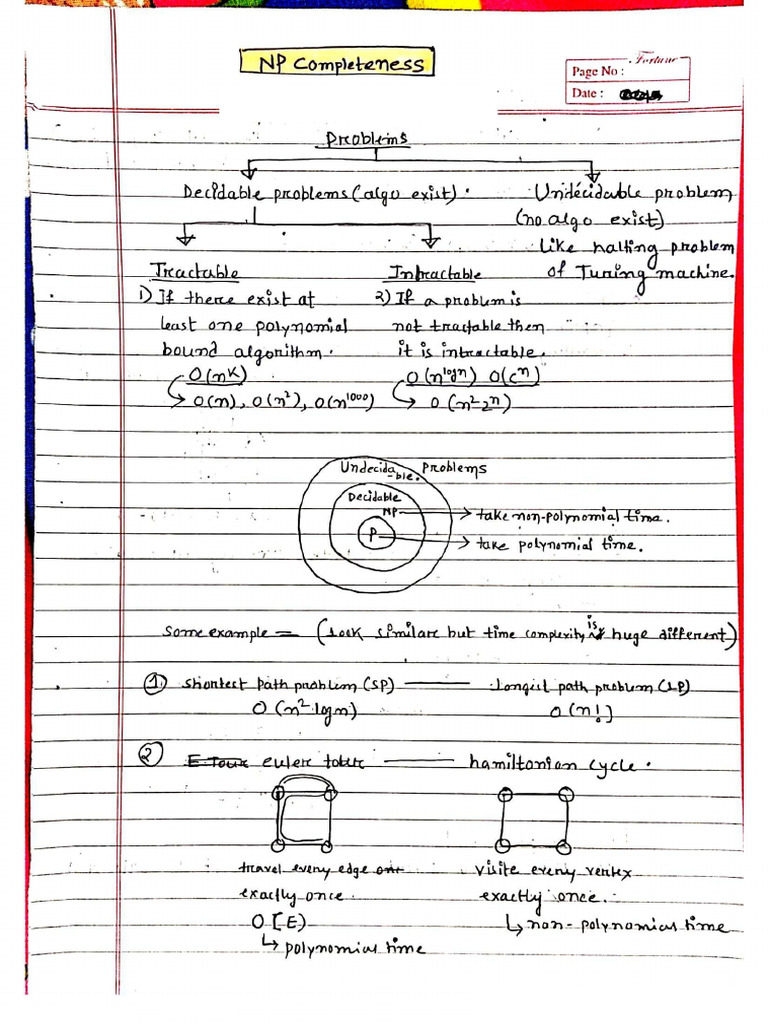 NP Completeness
Fortune
Page No :
Date :
Problems
Decidable problems (algo exist).
Undecidable problem
(no algo exist)
Like halting problem
of Turing machine.
Tractable
1) If there exist at
least one polynomial
bound algorithm.
O(n^k)
O(n), O(n²), O(n¹⁰⁰⁰)
Intractable
2) If a problem is
not tractable then
it is intractable.
O(n^logn) O(c^n)
O(n² 2^n)
Undecida
-ble. Problems
Decidable
NP → take non-polynomial time.
P → take polynomial time.
Some example = (look similar but time complexity is huge different)
① Shortest Path problem (SP) —— Longest path problem (LP)
O(n² logn) O(n!]
② E-Tour euler tour —— hamiltonian cycle.
travel every edge
exactly once.
O[E)
↳ polynomial time
visite every vertex
exactly once.
↳ non-polynomial time